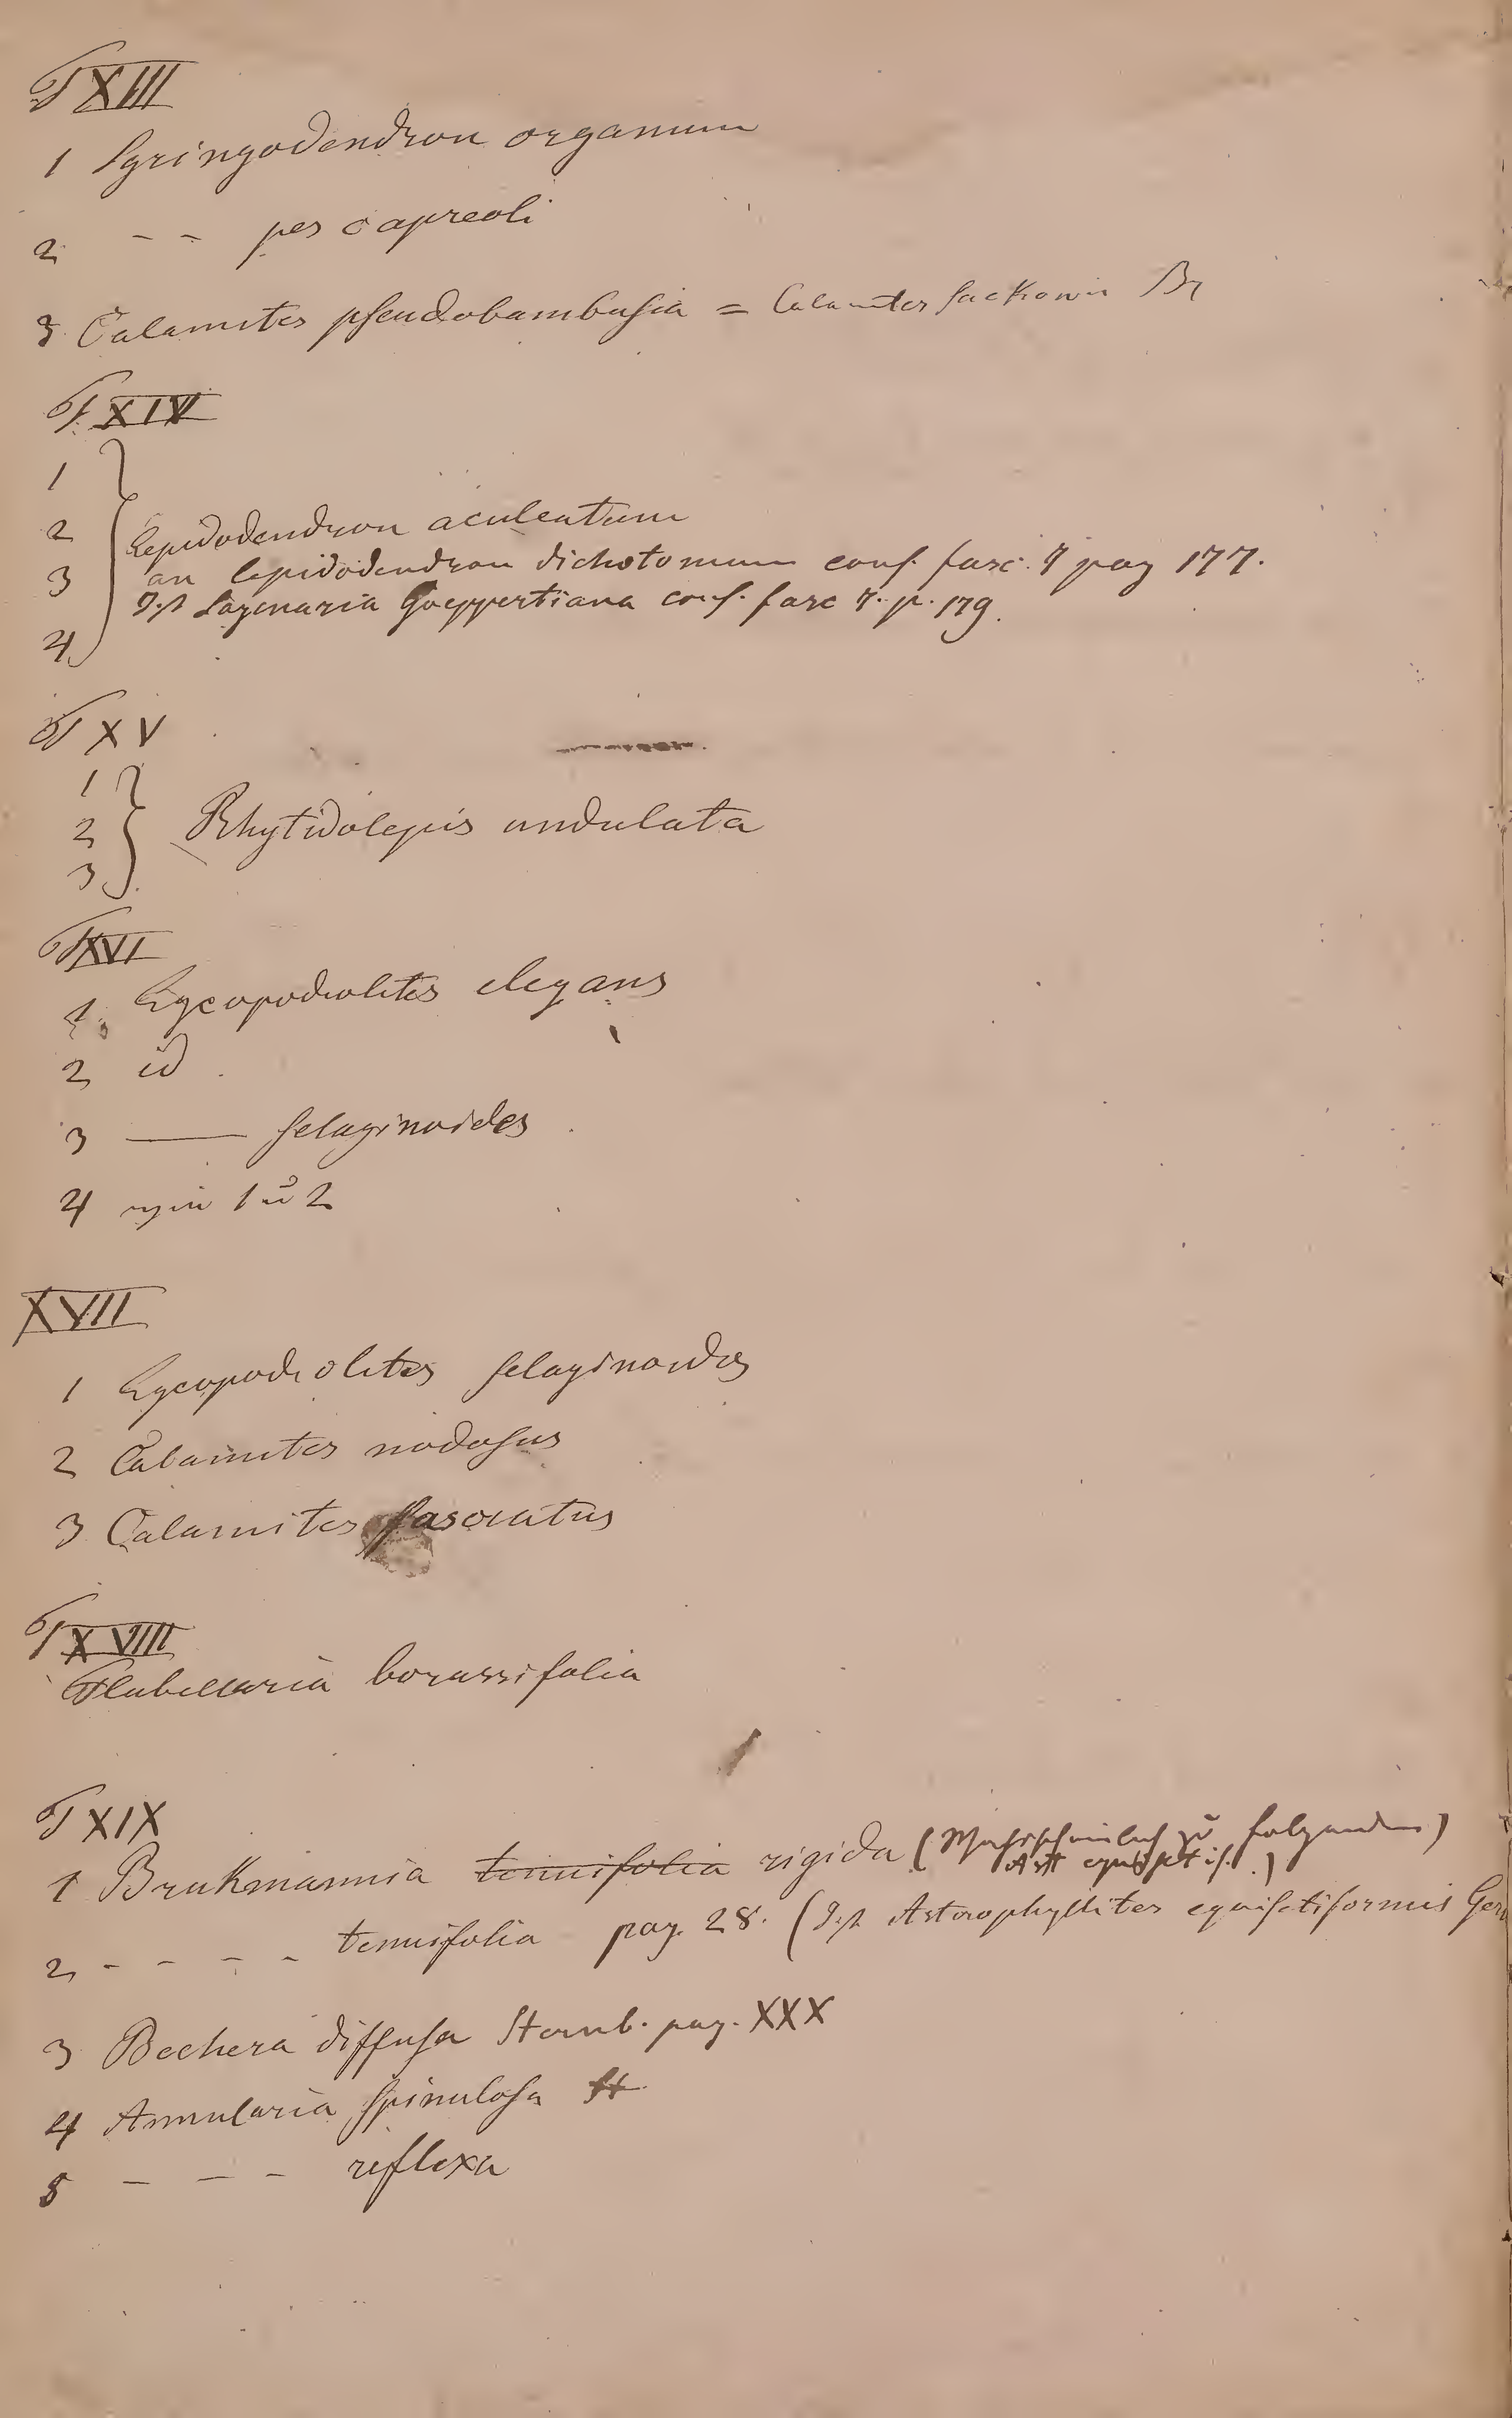 T XIII
1 Syringodendron organum
2 - - pes capreoli
3 Calamites pseudobambusia = Calamites Suckowii Br
T. XIV
1
2 Lepidodendron aculeatum
3 an lepidodendron dichotomum conf. fasc. 7 pag 177.
Ist Sagenaria Goeppertiana conf. fasc 7. p. 179.
4
T XV
1
2 Rhytidolepis undulata
3
T XVI
1. Lycopodiolites elegans
2 id.
3 — selaginoides
4 wie 1 u 2
XVII
1 Lycopodiolites selaginoides
2 Calamites nodosus
3 Calamites fasciatus
T XVIII
Flabellaria borassifolia
T XIX
1 Brukmannia tenuifolia rigida (Wahrscheinlich zu folgender)
Ast equisetif.)
2 - - - - tenuifolia pag. 28. (Ist Asterophyllites equisetiformis
3 Bechera diffusa Sternb. pag. XXX
4 Annularia spinulosa St.
5 - - - reflexa